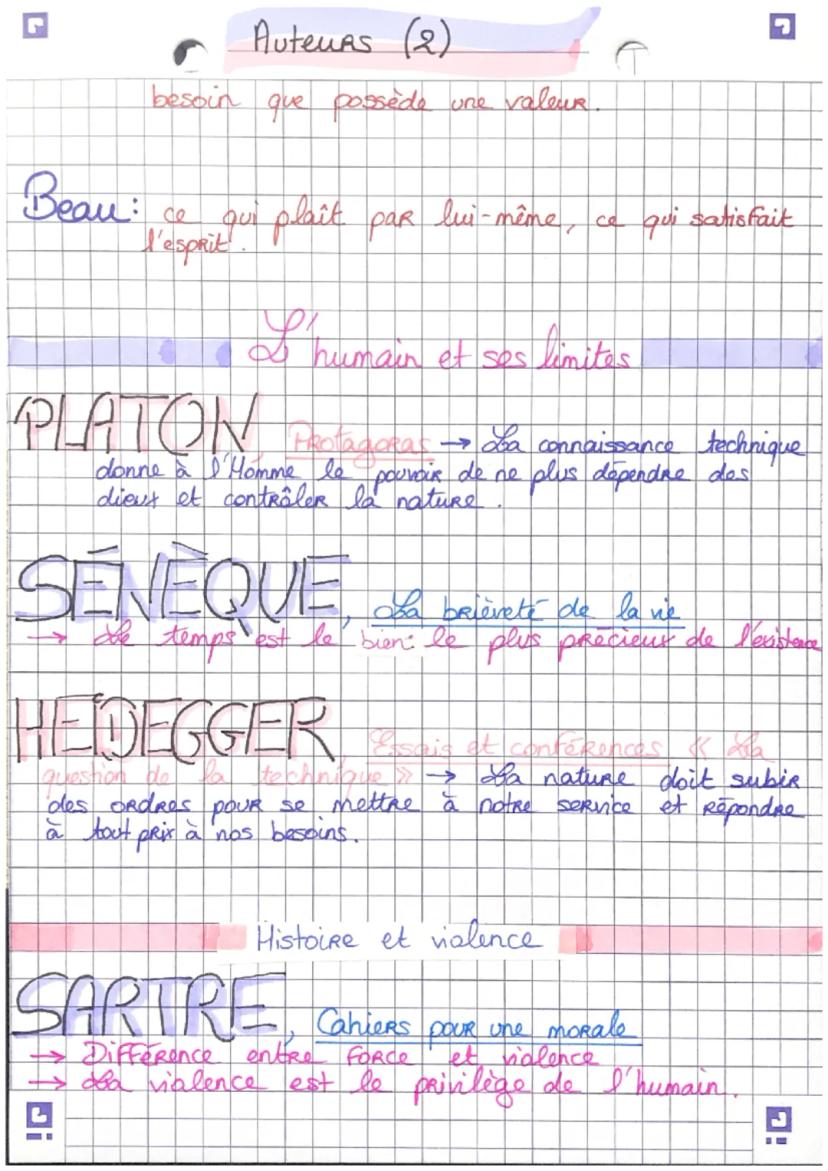 Auteurs (2)
besoin que possède une valeur.
Beau: ce qui plaît par lui-même, ce qui satisfait
l'esprit.
L'humain et ses limites
PLATON, Protagoras → La connaissance technique
donne à l'Homme le pouvoir de ne plus dépendre des
dieux et contrôler la nature.
SÉNÈQUE, La brièveté de la vie
→ Le temps est le bien le plus précieux de l'existence
HEIDEGGER, Essais et conférences « La
question de la technique » → La nature doit subir
des ordres pour se mettre à notre service et répondre
à tout prix à nos besoins.
Histoire et violence
SARTRE, Cahiers pour une morale
→ Différence entre force et violence
→ La violence est le privilège de l'humain.